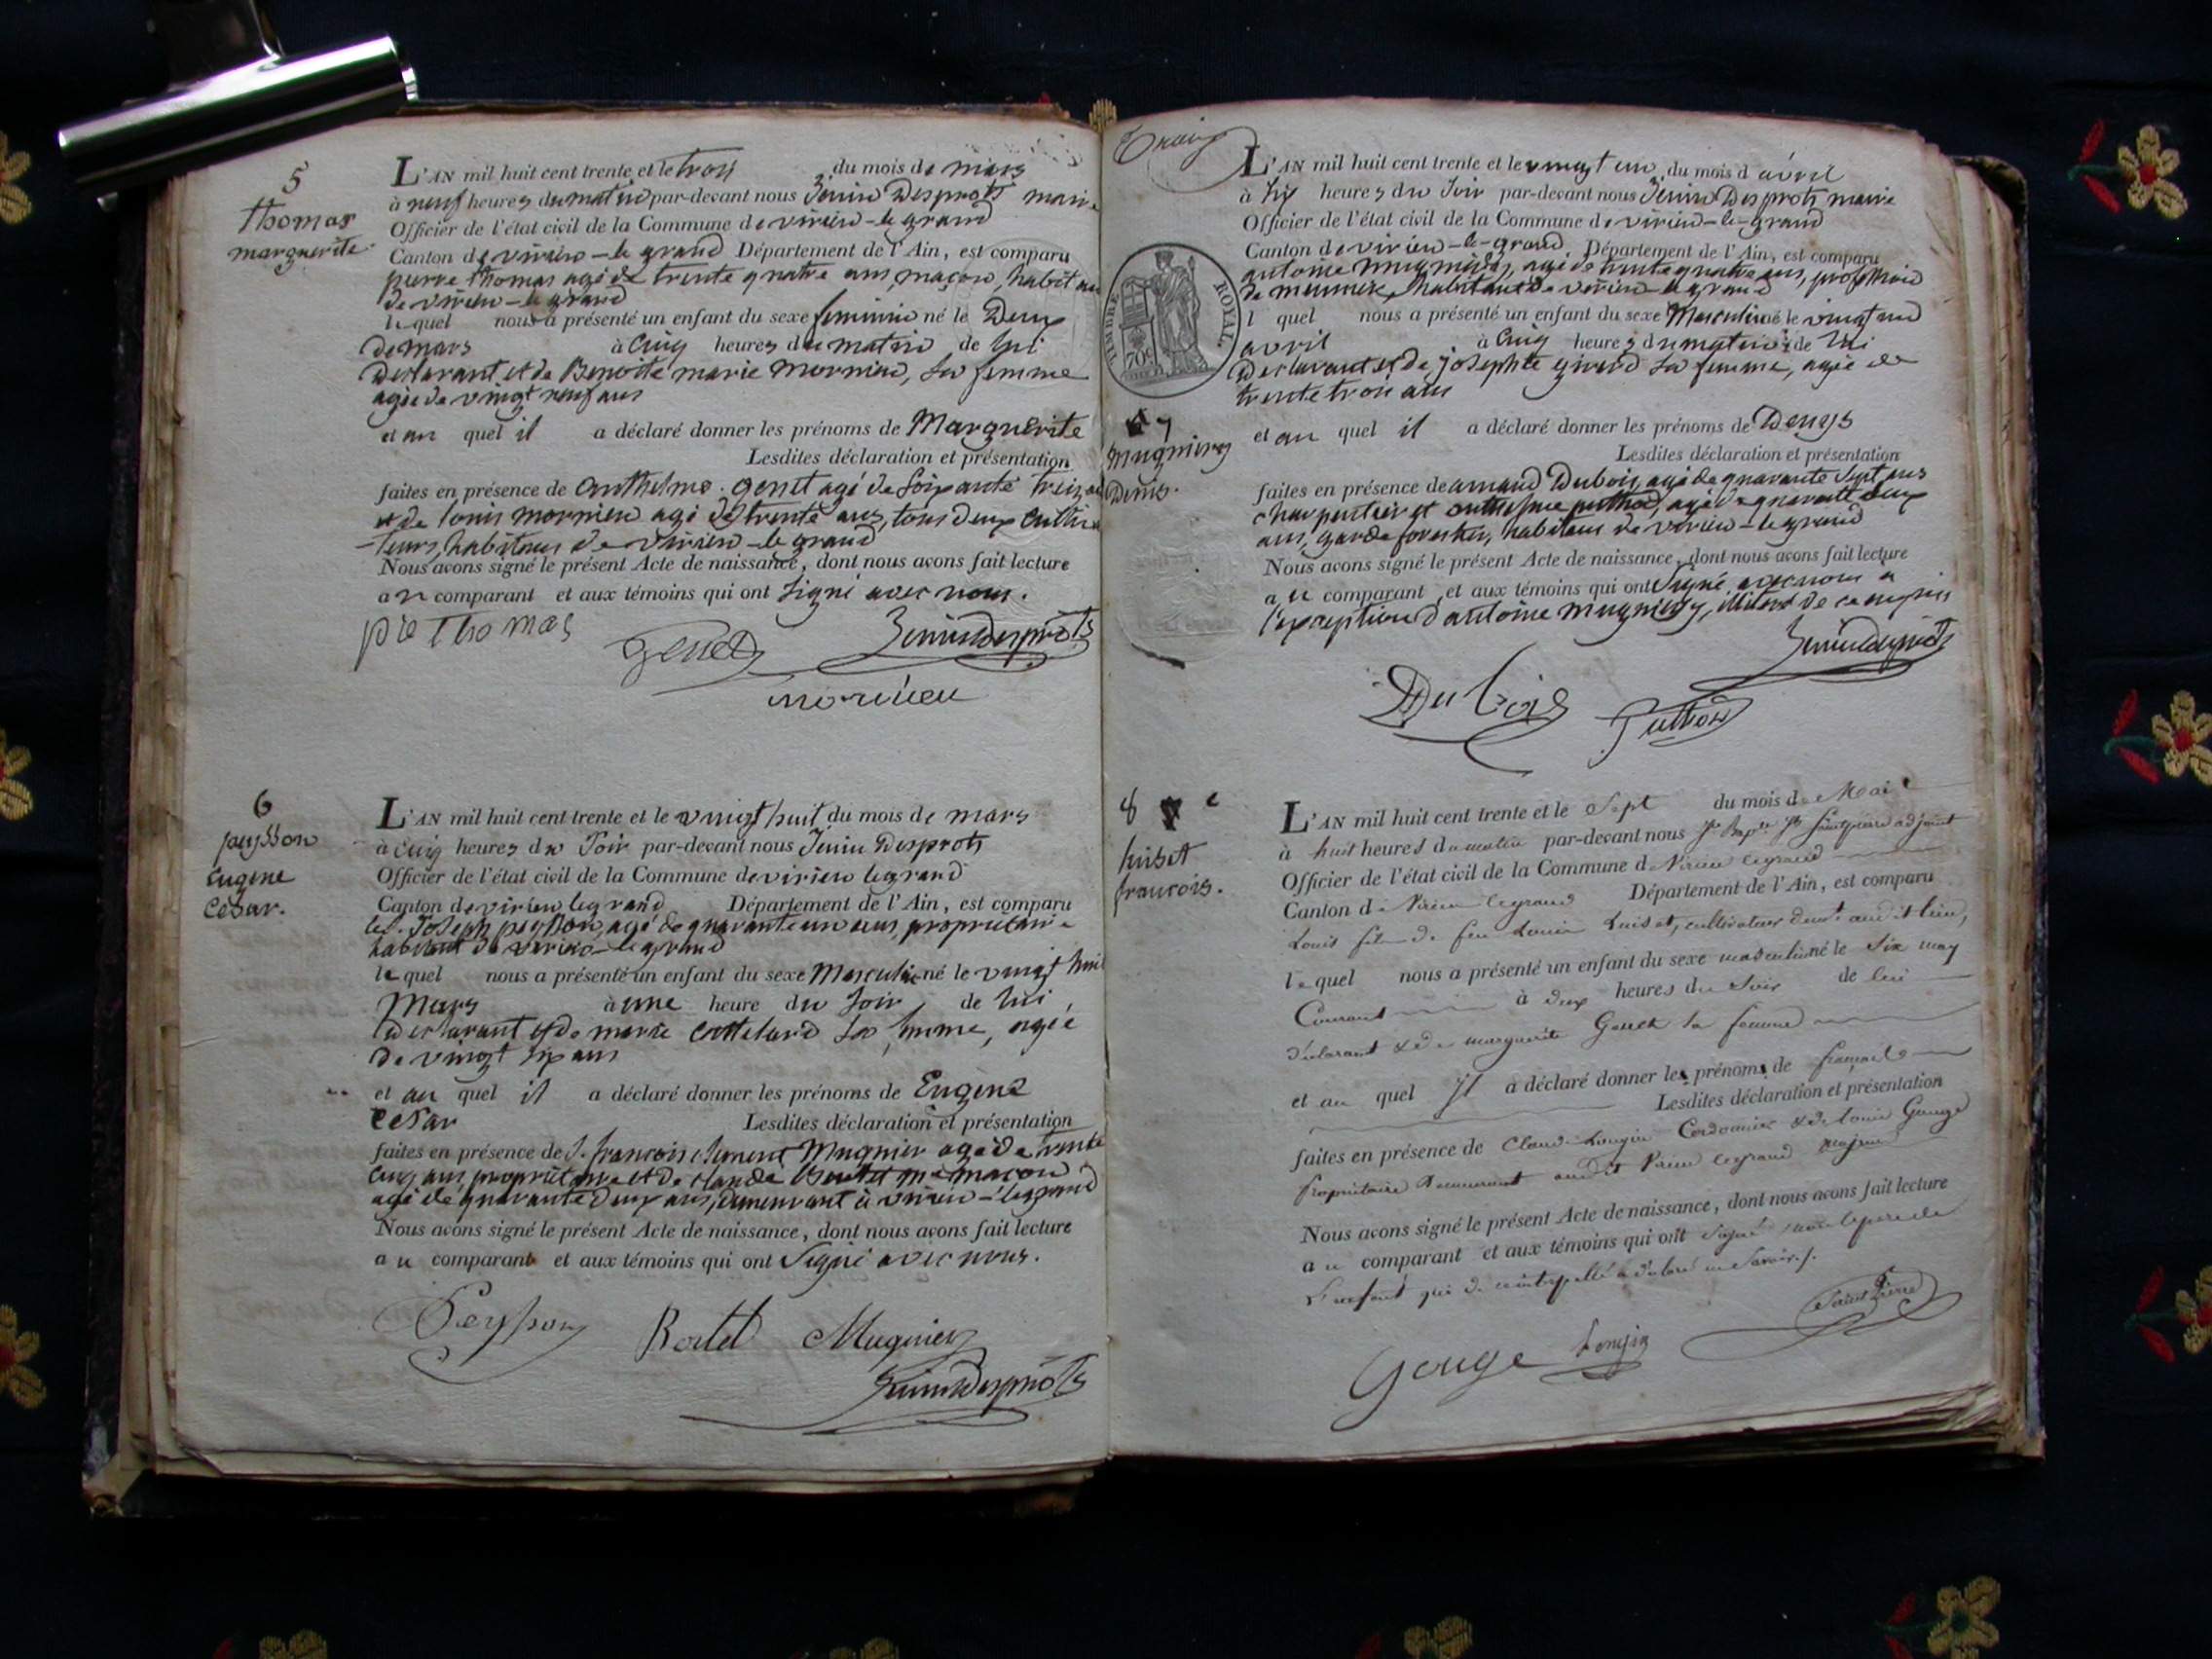 5
Thomas
marguerite
L'AN mil huit cent trente et le trois du mois de mars
à neuf heures du matin par-devant nous Jenin Desprots maire
Officier de l'état civil de la Commune de virieu-le grand
Canton de virieu-le grand Département de l'Ain, est comparu
pierre Thomas agé de trente quatre ans, maçon, habitant
de virieu-le grand
lequel nous a présenté un enfant du sexe feminin né le Deux
De mars à Cinq heures du matin de lui
Declarant et de Benoite marie Mornieu, sa femme
agée de vingt neuf ans
et au quel il a déclaré donner les prénoms de Marguerite
Lesdites déclaration et présentation
faites en présence de Anthelme genet agé de soixante treize ans
et de louis mornieu agé de trente ans, tous deux cultiva
-teurs, habitans de virieu-le grand
Nous avons signé le présent Acte de naissance, dont nous avons fait lecture
au comparant et aux témoins qui ont signé avec nous.
pre Thomas genet Jenin Desprots
mornieu
6
peysson
Eugene
César.
L'AN mil huit cent trente et le vingt huit du mois de mars
à cinq heures du soir par-devant nous Jenin Desprots
Officier de l'état civil de la Commune de virieu le grand
Canton de virieu le grand Département de l'Ain, est comparu
le s. Joseph peysson, agé de quarante un ans, propriétaire
habitant de virieu-le grand
lequel nous a présenté un enfant du sexe Masculin né le vingt huit
Mars à une heure du soir, de lui,
Declarant et de marie Cattelard sa femme, agée
de vingt six ans
et au quel il a déclaré donner les prénoms de Eugene
Cesar Lesdites déclaration et présentation
faites en présence de s. francois clement Mugnier agé de trente
cinq ans, propriétaire et de claude Boutet me macon
agé de quarante deux ans, demeurant à virieu-le grand
Nous avons signé le présent Acte de naissance, dont nous avons fait lecture
au comparant et aux témoins qui ont signé avec nous.
Peysson Boutet Mugnier
Jenin Desprots
TIMBRE ROYAL
70c
7
Mugniery
Denis.
L'AN mil huit cent trente et le vingt un du mois d'avril
à six heures du soir par-devant nous Jenin Desprots maire
Officier de l'état civil de la Commune de virieu-le-grand
Canton de virieu-le-grand Département de l'Ain, est comparu
antoine mugniery, agé de trente quatre ans, profession
de meunier, habitant de virieu-le grand
lequel nous a présenté un enfant du sexe Masculin né le vingt un
avril à Cinq heures du matin de lui
Declarant et de josephte girard sa femme, agée de
trente trois ans
et au quel il a déclaré donner les prénoms de Denys
Lesdites déclaration et présentation
faites en présence de arnaud Dubois, agé de quarante sept ans
charpentier et anthelme puthod, agé de quarante deux
ans, garde forestier, habitans de virieu-le grand
Nous avons signé le présent Acte de naissance, dont nous avons fait lecture
au comparant, et aux témoins qui ont signé avec nous a
l'exception d'antoine mugniery, illitéré de ce enquis
Jenin Desprots
Dubois Puthod
8
huiset
francois.
L'AN mil huit cent trente et le Sept du mois de Mai
à huit heures du matin par-devant nous Jn Bapte Saintpierre adjoint
Officier de l'état civil de la Commune de Virieu legrand
Canton de Virieu legrand Département de l'Ain, est comparu
Louis fils de feu Louis Luiset, cultivateur demt audit lieu,
lequel nous a présenté un enfant du sexe masculin né le Six may
Courant à deux heures du Soir de lui
déclarant & de marguerite Genet sa femme
et au quel Il a déclaré donner les prénoms de francois
Lesdites déclaration et présentation
faites en présence de Claude Longin Cordonnier & de Louis Gouge
propriétaire demeurant audit Virieu legrand majeurs
Nous avons signé le présent Acte de naissance, dont nous avons fait lecture
au comparant et aux témoins qui ont signé non le père de
L'enfant qui de ce interpellé a déclaré ne Savoir./.
Saint Pierre
Gouge Longin